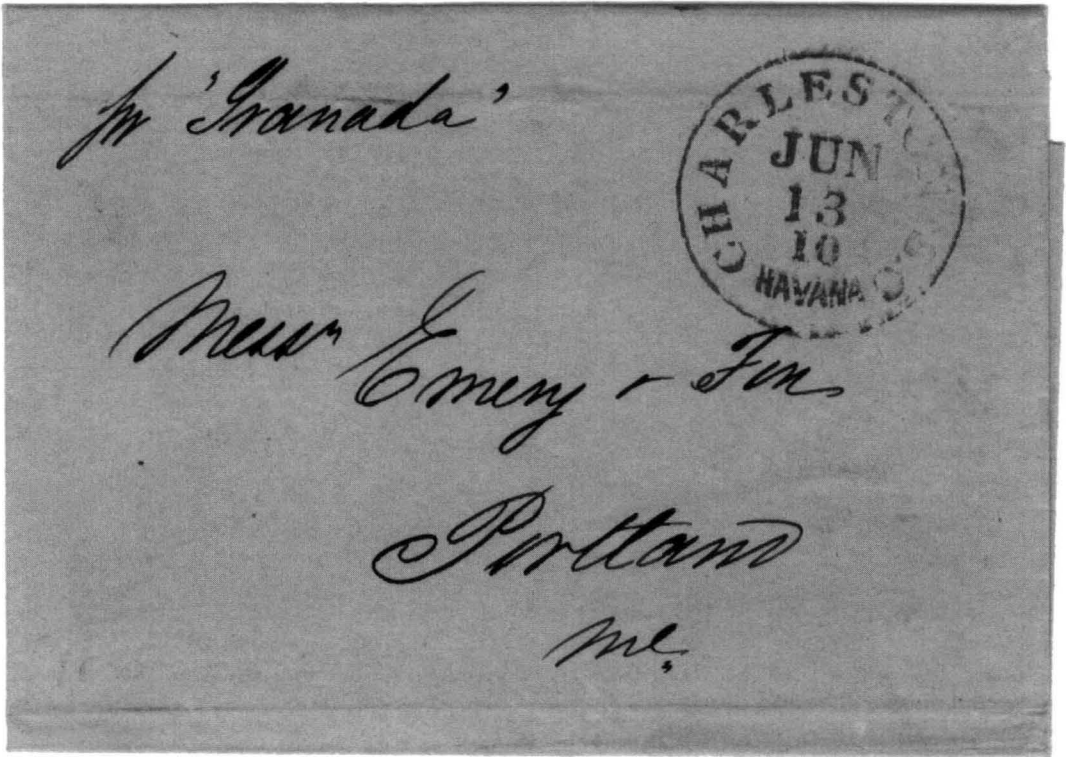 pr 'Granada'
CHARLESTON S.C.
JUN
13
10
HAVANA
Messrs Emery & Fox
Portland
Me.